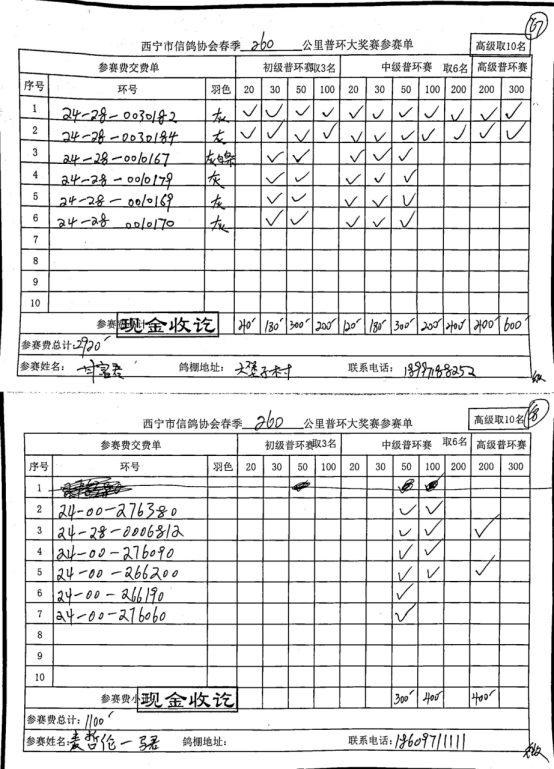 67
西宁市信鸽协会春季 260 公里普环大奖赛参赛单 高级取10名
参赛费交费单 初级普环赛取3名 中级普环赛 取6名 高级普环赛
序号 环号 羽色 20 30 50 100 20 30 50 100 200 200 300
1 24-28-0030182 灰 ✓ ✓ ✓ ✓ ✓ ✓ ✓ ✓ ✓ ✓ ✓
2 24-28-0030184 灰 ✓ ✓ ✓ ✓ ✓ ✓ ✓ ✓ ✓ ✓ ✓
3 24-28-0010167 ✓ ✓ ✓ ✓ ✓
4 24-28-0010179 灰 ✓ ✓ ✓ ✓ ✓
5 24-28-0010169 灰 ✓ ✓ ✓ ✓ ✓
6 24-28 0010170 灰 ✓ ✓ ✓ ✓ ✓
7
8
9
10
参赛 现金收讫 40 180 300 200 120 180 300 200 400 400 600
参赛费总计:2920
参赛姓名: 鸽棚地址: 联系电话:
西宁市信鸽协会春季 260 公里普环大奖赛参赛单 高级取10名
参赛费交费单 初级普环赛取3名 中级普环赛 取6名 高级普环赛
序号 环号 羽色 20 30 50 100 20 30 50 100 200 200 300
1
2 24-00-276380 ✓ ✓
3 24-28-0006812 ✓ ✓ ✓
4 24-00-276090 ✓ ✓
5 24-00-266200 ✓ ✓ ✓
6 24-00-266190 ✓
7 24-00-276060 ✓
8
9
10
参赛费小 现金收讫 300 400 400
参赛费总计:1100
参赛姓名:麦哲伦一 鸽棚地址: 联系电话:18609711111